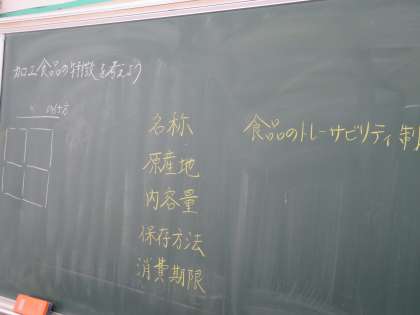 加工食品の特徴を考えよう
名称
原産地
内容量
保存方法
消費期限
食品のトレーサビリティ制